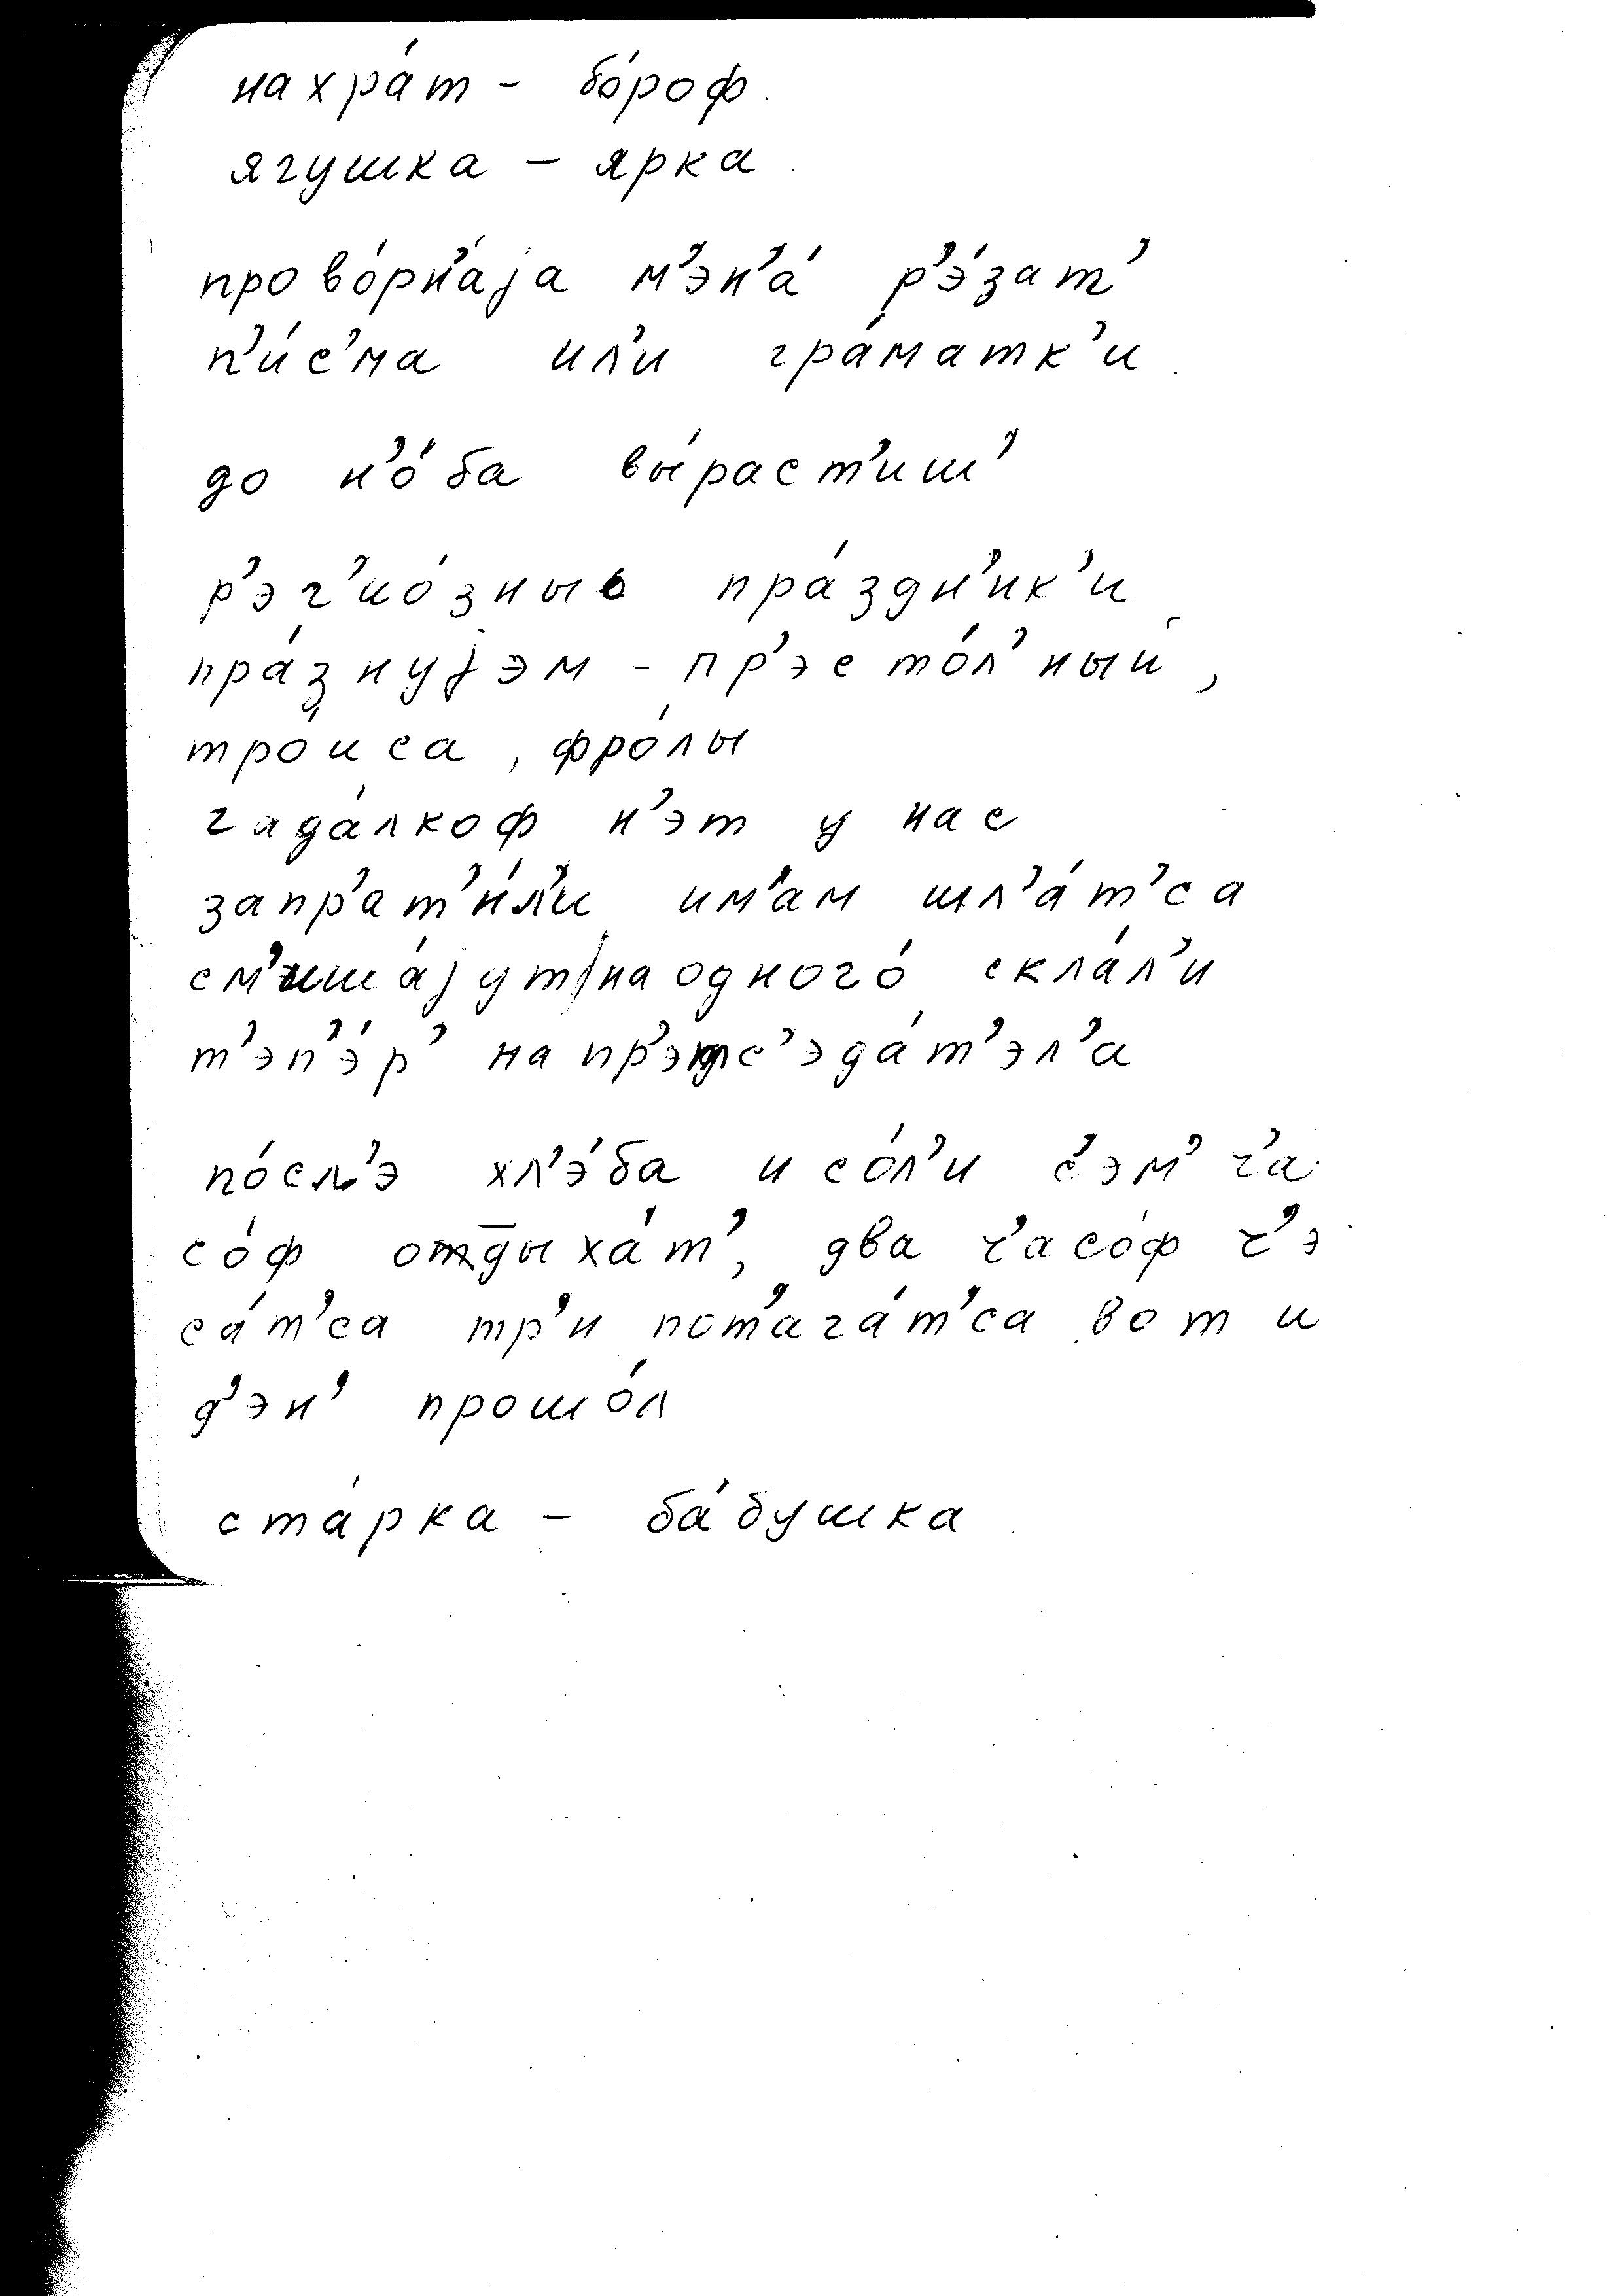 нахра́т - бо́роф.
ягушка - ярка.
прово́рн'аjа м'эн'а́ р'э́зат'
п'и́с'ма ил'и гра́матк'и.
до н'о́ба вы́раст'иш'
р'эг'ио́зныо пра́здн'ик'и
пра́знуjэм - пр'эсто́л'ный,
тро́иса, фро́лы
гада́лкоф н'эт у нас
запр'ат'и́л'и им'ам шл'а́т'са
см'иша́jут/на одного́ скла́л'и
т'эп'э́р' на пр'этс'эда́т'эл'а
по́сл'э хл'э́ба и со́л'и с'эм' ч'а
со́ф отдыха́т', два ч'асо́ф ч'э
са́т'са тр'и пот'ага́т'са вот и
д'эн' прошо́л
ста́рка - ба́бушка